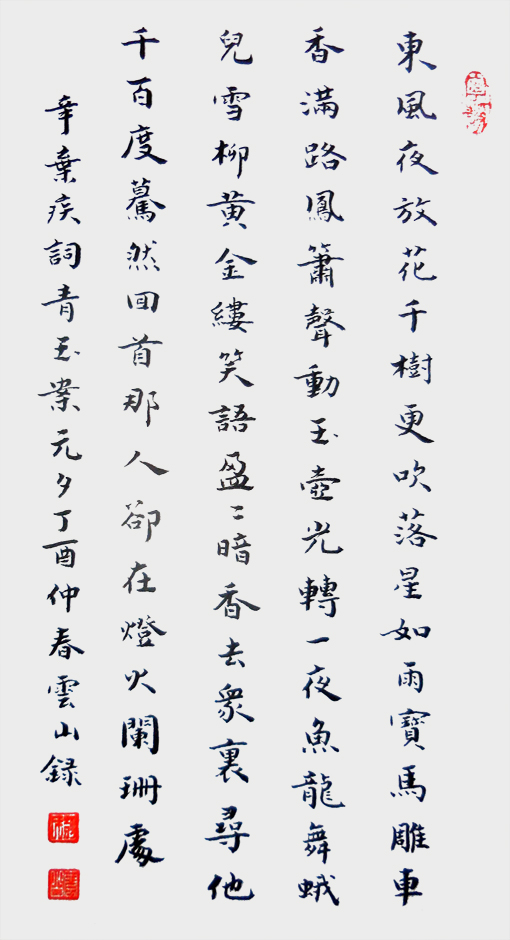 東風夜放花千樹更吹落星如雨寶馬雕車
香滿路鳳簫聲動玉壺光轉一夜魚龍舞蛾
兒雪柳黃金縷笑語盈〻暗香去衆裏尋他
千百度驀然回首那人卻在燈火闌珊處
辛棄疾詞青玉案元夕丁酉仲春雲山録